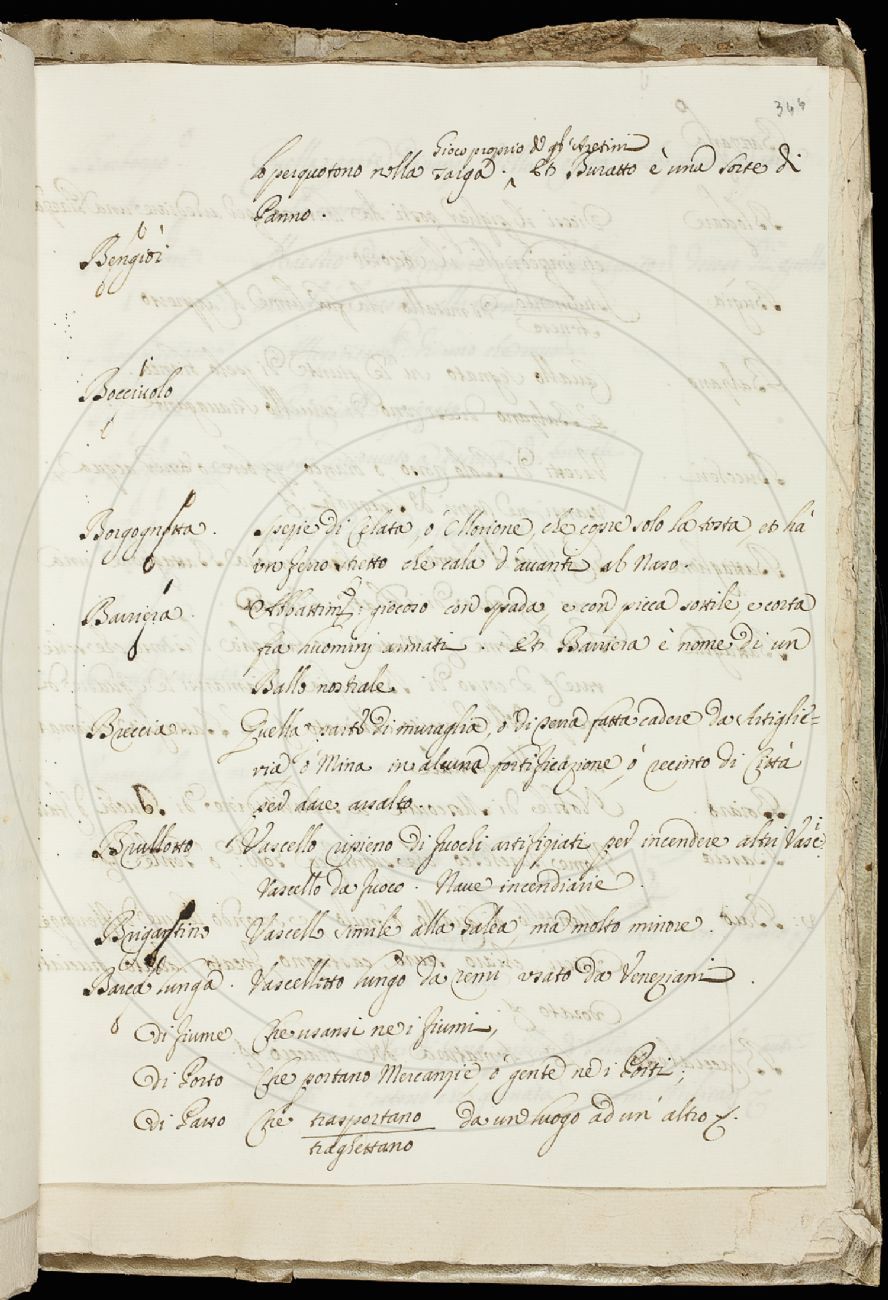 344
Gioco proprio de gl' Aretini
lo perquotono nella Targa. ^ Et Buratto è una sorte di
Panno.
Bengiòi
Bocciuolo
Borgognotta. spezie di Celata, ò Morione, che copre solo la testa, et hà
un ferro stretto che cala d'avanti al Naso.
Barriera. Abbattim.to giocoso con spada, e con picca sottile e corta
fra huominj armati. Et Barriera è nome di un
Ballo nostrale.
Breccia Quella parte di muraglia, ò di terra fatta cadere da Artiglie=
ria, ò Mina in alcuna fortificazione, ò recinto di Città
per dare assalto
Brullotto Vascello ripieno di fuochi artifiziati per incendere altri Vasc.i
Vascello da fuoco. Nave incendiarie.
Brigantino Vascell. simile alla Galea, ma molto minore.
Barca lunga. Vascelletto lungo da remi usato da Veneziani.
di fiume Che usansi ne i fiumi,
di Porto Che portano Mercanzie, ò gente ne i Porti;
di Passo Che trasportano da un luogo ad un' altro
traghettano